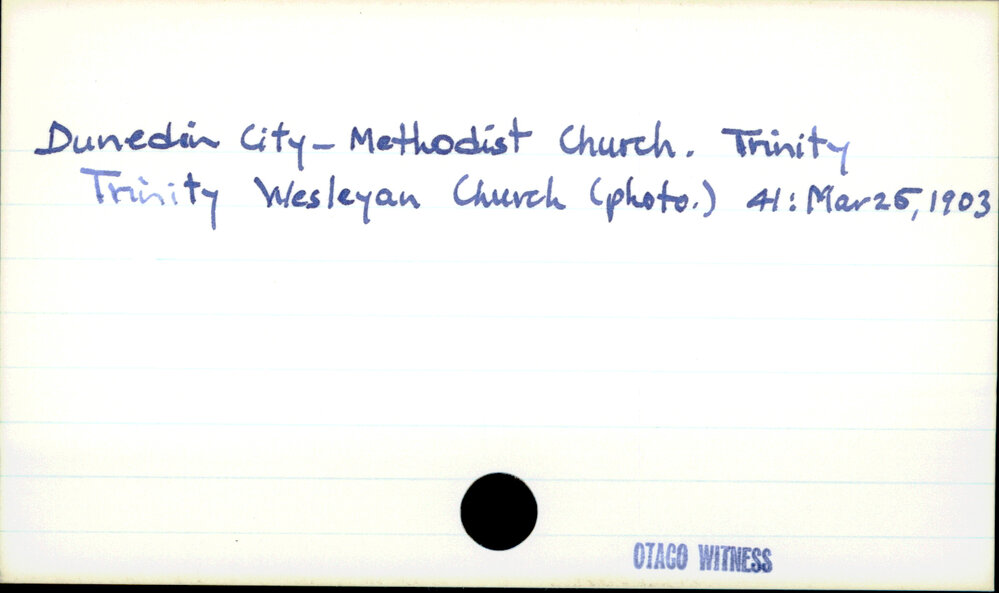 Dunedin City - Methodist Church. Trinity
Trinity Wesleyan Church (photo.) 41: Mar 25, 1903
OTAGO WITNESS